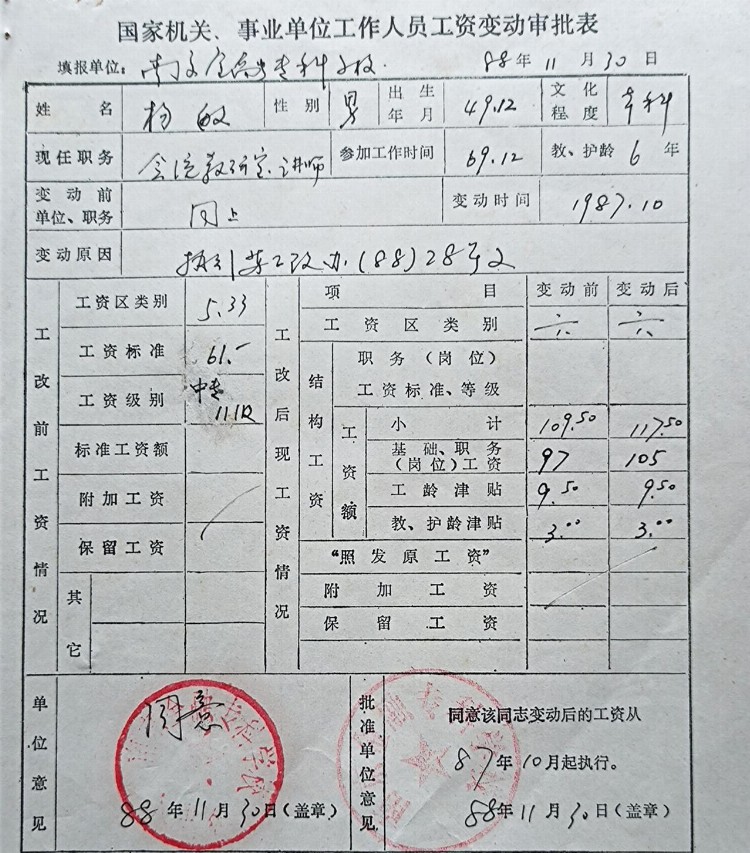 国家机关、事业单位工作人员工资变动审批表
填报单位: 专科学校. 88年11月30日
姓名 杨敏 性别 男 出生年月 49.12 文化程度 专科
现任职务 会统教研室讲师 参加工作时间 69.12 教、护龄 6年
变动前单位、职务 同上 变动时间 1987.10
变动原因 苏工改办(88)28号文
工改前工资情况
工资区类别 5.33
工资标准 61.-
工资级别 中专 11级
标准工资额
附加工资
保留工资
其它
工改后现工资情况
项目 变动前 变动后
工资区类别 六 六
结构工资
职务(岗位)工资标准、等级
工资额
小计 109.50 117.50
基础、职务(岗位)工资 97 105
工龄津贴 9.50 9.50
教、护龄津贴 3.00 3.00
“照发原工资”
附加工资
保留工资
单位意见
同意
88年11月30日(盖章)
批准单位意见
同意该同志变动后的工资从
87年10月起执行。
88年11月30日(盖章)